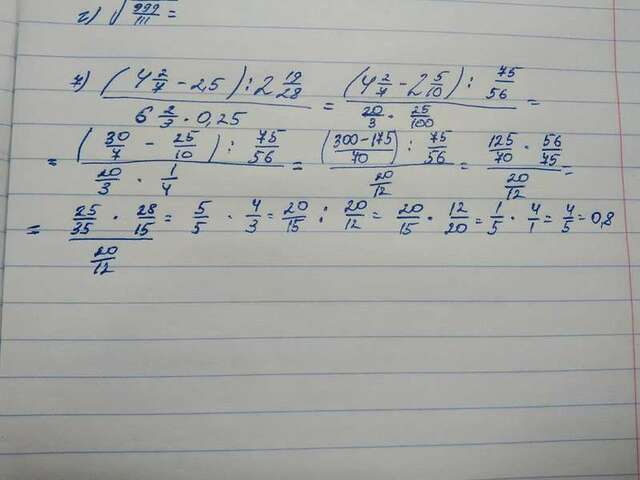 г) √(999/111) =
ж) ((4 2/7 - 2,5) : 2 19/28)/(6 2/3 · 0,25) = ((4 2/7 - 2 5/10) : 75/56)/(20/3 · 25/100) =
= ((30/7 - 25/10) : 75/56)/(20/3 · 1/4) = (((300-175)/70) : 75/56)/(20/12) = (125/70 · 56/75)/(20/12) =
= (25/35 · 28/15)/(20/12) = 5/5 · 4/3 = 20/15 : 20/12 = 20/15 · 12/20 = 1/5 · 4/1 = 4/5 = 0,8